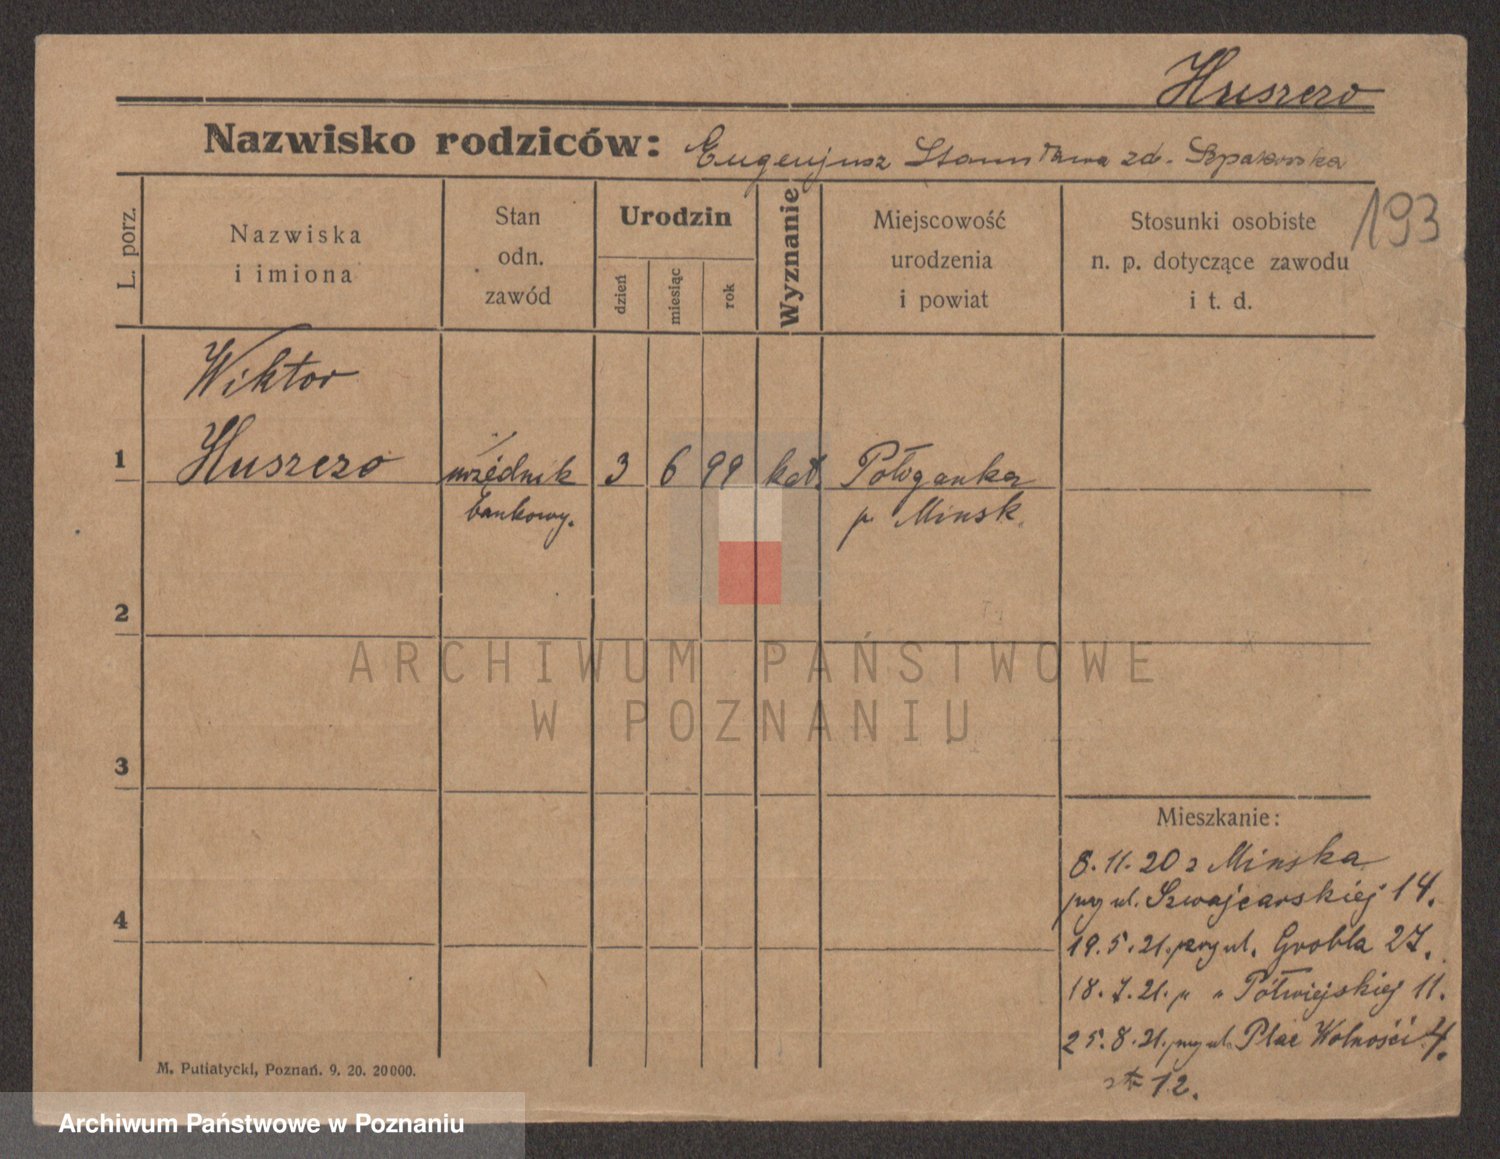 Huszczo
Nazwisko rodziców: Eugenjusz Stanisława zd.
193
L. porz.
Nazwiska
i imiona
Stan
odn.
zawód
Urodzin
dzień
miesiąc
rok
Wyznanie
Miejscowość
urodzenia
i powiat
Stosunki osobiste
n. p. dotyczące zawodu
i t. d.
Wiktor
1 Huszczo urzędnik 3 6 99 kat.
bankowy. p. Minsk
2
3
4
ARCHIWUM PAŃSTWOWE
W POZNANIU
Mieszkanie:
8.11.20 z Minska
przy ul. Szwajcarskiej 14.
19.5.21. przy ul. Grobla 27.
18.7.21. p " Półwiejskiej 11.
25.8.21. przy ul. Plac Wolności 4.
12.
M. Putiatycki, Poznań. 9. 20. 20000.
Archiwum Państwowe w Poznaniu